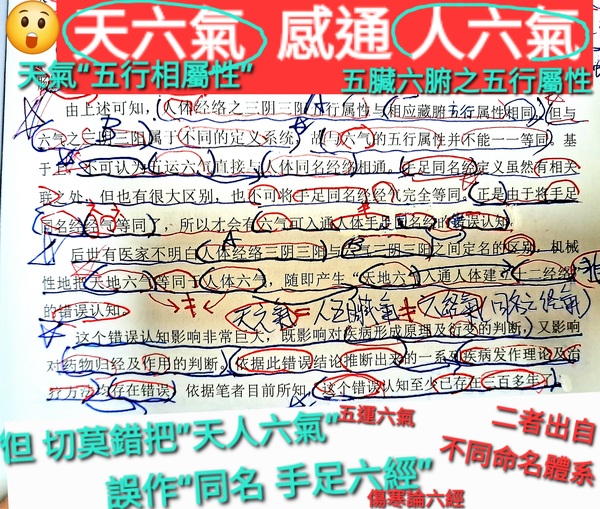 天六氣 感通 人六氣
天氣"五行相屬性" 五臟六腑之五行屬性
由上述可知，人体经络之三阴三阳五行属性与相应藏腑五行属性相同，但与
六气之三阴三阳属于不同的定义系统，故与六气的五行属性并不能一一等同。基
于此，不可认为五运六气直接与人体同名经络相通。手足同名经定义虽然有相关
联之处，但也有很大区别，也不可将手足同名经经气完全等同。正是由于将手足
同名经经气等同了，所以才会有六气可入通人体手足同名经的错误认知。
后世有医家不明白人体经络三阴三阳与六气三阴三阳之间定名的区别，机械
性地把天地六气等同于人体六气，随即产生"天地六气入通人体建立十二经络"
的错误认知。
天六氣=人五臟氣≠六经氣
这个错误认知影响非常巨大，既影响对疾病形成原理及衍变的判断，又影响
对药物归经及作用的判断。依据此错误结论推断出来的一系列疾病发作理论及治
疗方法均存在错误。依据笔者目前所知，这个错误认知至少已存在三百多年。
但 切莫錯把"天人六氣" 五運六氣
二者出自
不同命名體系
誤作"同名 手足六經"
傷寒論六經